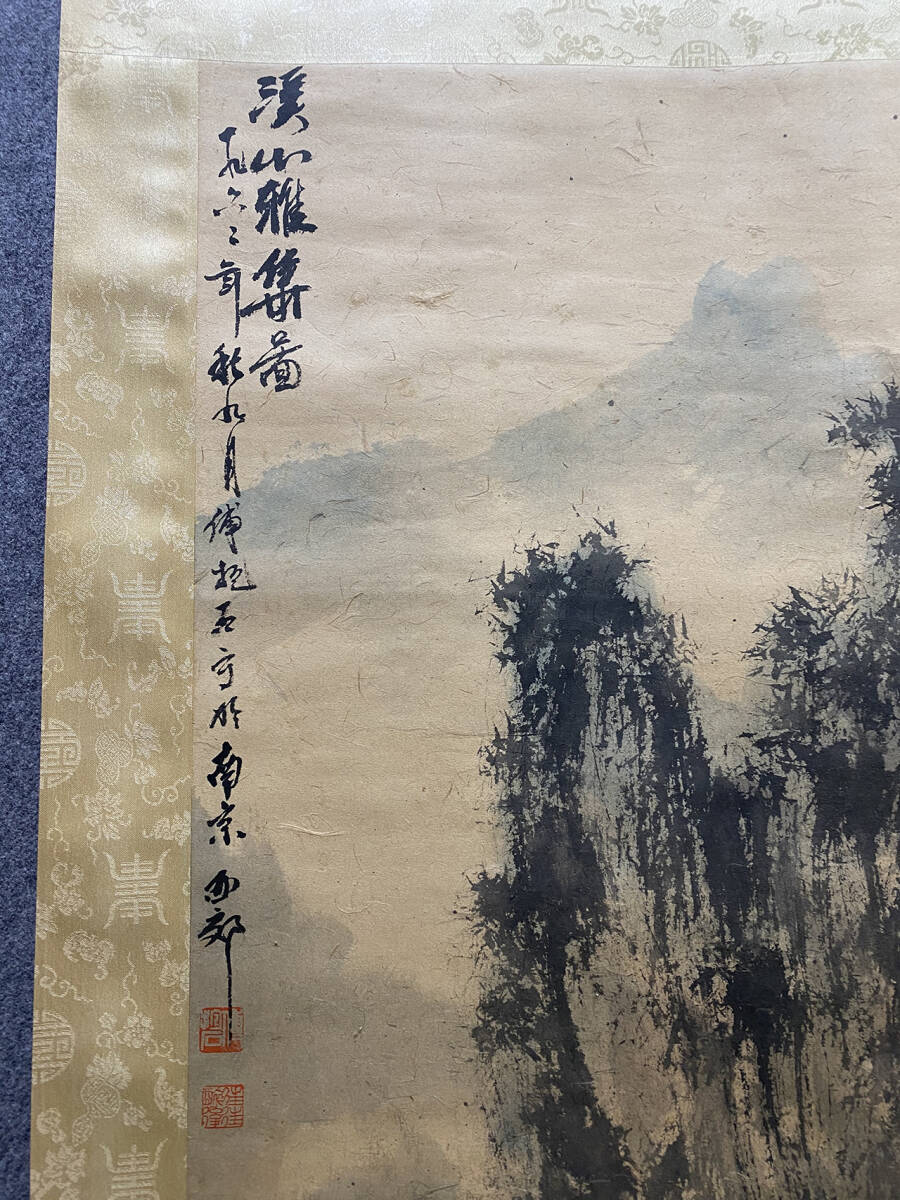 溪山雅集圖
一九六二年秋九月傅抱石寫於南京西郊